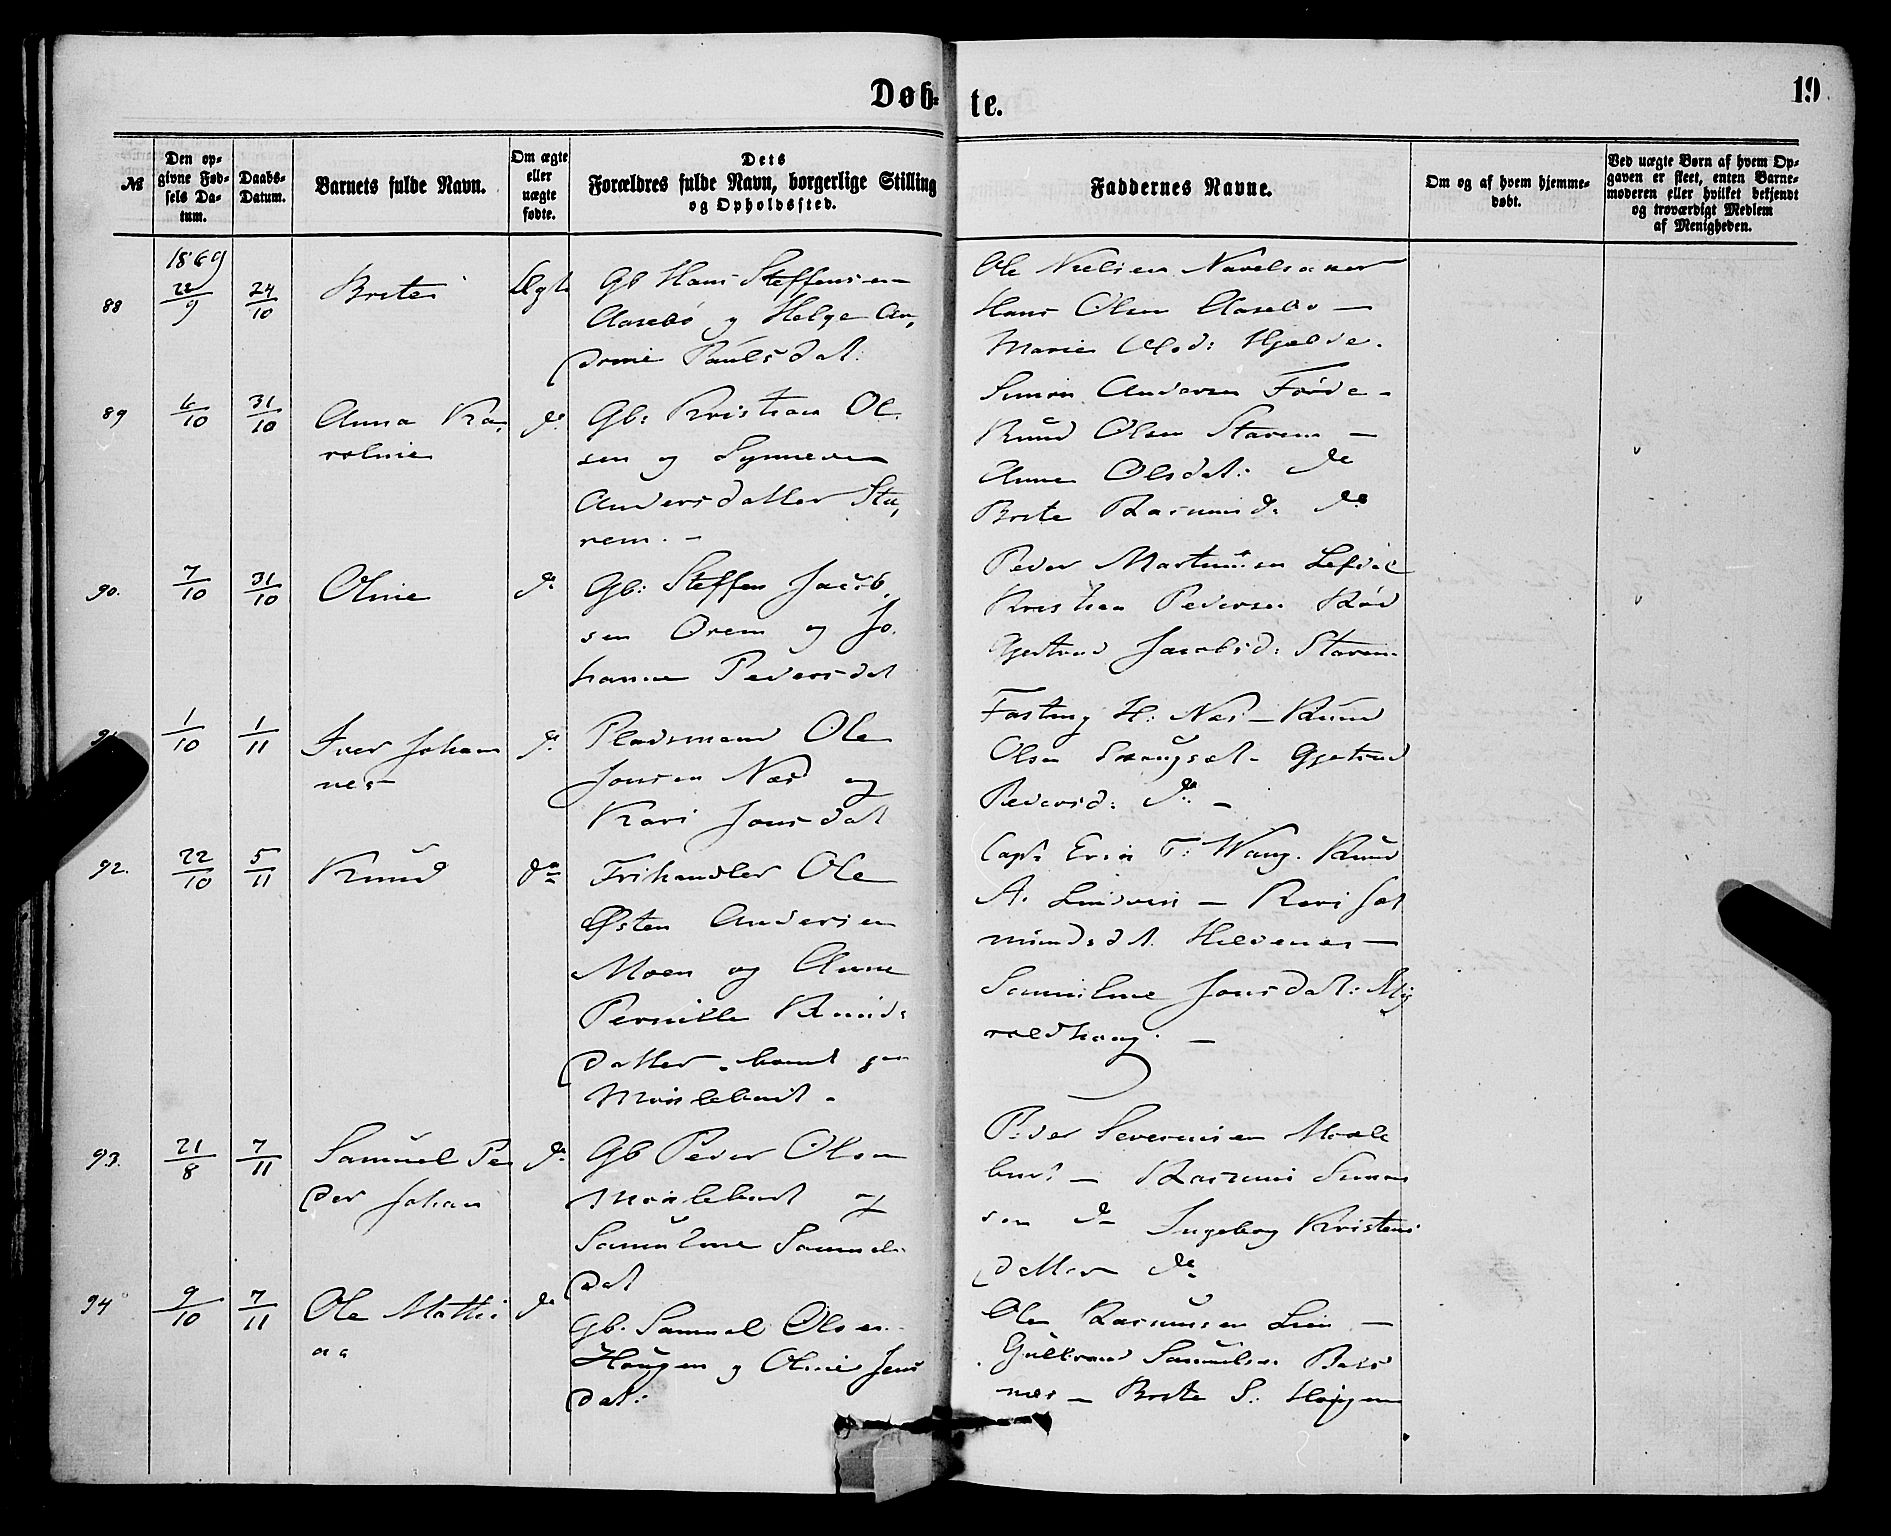 Døb-
te.
19
№
Den op-
givne Fød-
sels Da-
tum.
Daabs-
Datum.
Barnets fulde Navn.
Om ægte
eller
uægte
fødte.
Dets
Forældres fulde Navn, borgerlige Stilling
og Opholdssted.
Faddernes Navne.
Om og af hvem hjemme-
døbt.
Ved uægte Børn af hvem Op-
gaven er skeet, enten Barne-
moderen eller hvilket bekjendt
og troværdigt Medlem
af Menigheden.
1869
88 22/9 24/10 Brite Ægte Gb Hans Steffensen
Aasebø og Helge
Paulsdat:
Ole Nielsen
Hans Olsen Aasebø —
Marie Olsd: Hjelde.
89 6/10 31/10 Anna Ka-
roline do Gb: Kristian Ol-
sen og Synneve
Andersdatter Sta-
rem. -
Simon Andersen Førde -
Knud Olsen Starem —
Anne Olsdat: do
Brite Rasmusd. do
90. 7/10 31/10 Oline do Gb: Steffen Jacob-
sen Orem og Jo-
hanne Pedersdat
Peder Martinusen
Kristian Pedersen
Gjertrud Jacobsd: Starem
1/10 1/11 Iver Johan
nes do Pladsmand Ole
Jonsen Nes og
Kari Jonsdat
Fasting H: Nes — Knud
Olsen Gjertrud
Pedersd: do —
92. 22/10 5/11 Knud do Frihandler Ole
Østen Andersen
Moen og Anne
Pernille Knuds
datter
Capt: T: Wang. Knud
A. — Kari
mundsdt. —
Jonsdat: My
roldhaug. —
93. 21/8 7/11 Samuel Pe
der Johan do Gb Peder Olsen
og
Samueline Samuels
dat
Peder Severinsen
— Rasmus Simon
sen do Ingeborg Kristens
datter do
94 9/10 7/11 Ole Mathi
as do Gb. Samuel Olsen
Haugen og Oline Jens
dat:
Ole Rasmusen Lien —
Samuelsen
nes — Brite S. Haugen